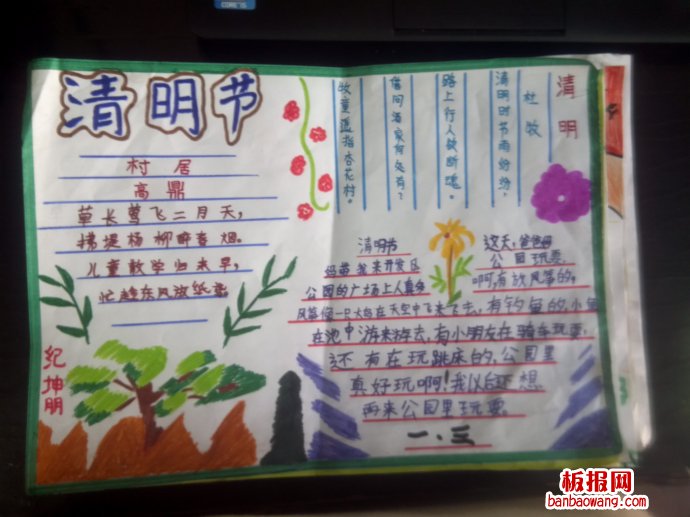 清明节
村居
高鼎
草长莺飞二月天，
拂堤杨柳醉春烟。
儿童散学归来早，
忙趁东风放纸鸢
纪坤朋
清明
杜牧
清明时节雨纷纷，
路上行人欲断魂。
借问酒家何处有？
牧童遥指杏花村。
清明节
这天，爸爸
妈带我来开发区
公园玩耍
公园的广场上人真多
啊，有放风筝的，
风筝像一只大鸟在天空中飞来飞去，有钓鱼的，小鱼
在池中游来游去，有小朋友在骑车玩耍，
还有在玩跳床的，公园里
真好玩啊！我以后还想
再来公园里玩耍
一.三
板报网
banbaowang.com